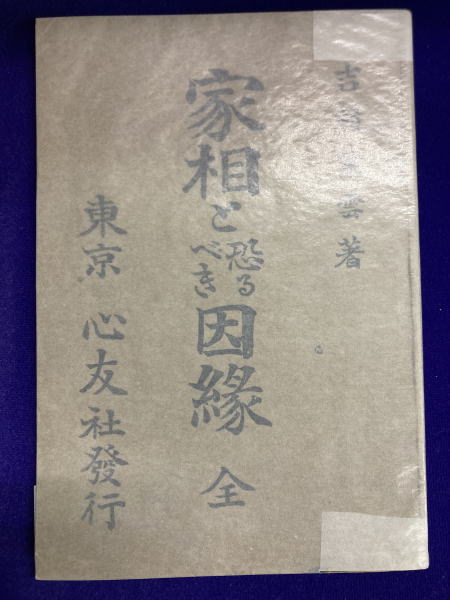 吉
雲著
家相と恐るべき因緣 全
東京 心友社發行